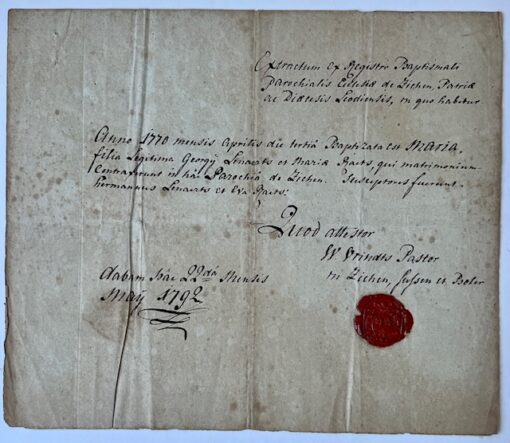 Extractum ex Registro Baptismali
parochialis Ecclesiæ de Zichen, Patriæ
ac Diœcesis Leodiensis, in quo habetur
Anno 1770 mensis Aprilis die tertiâ Baptizata est Maria,
filia Legitima Georgÿ Lenaerts et Mariæ Raets, qui matrimonium
Contraxerunt in hâc Parochiâ de Zichen. Susceptores fuerunt
hermannus Lenaerts et Eva Raets:
Quod attestor
W Vrindts Pastor
in Zichen, Sussen et Boler
dabam hac 22dâ Mensis
May 1792